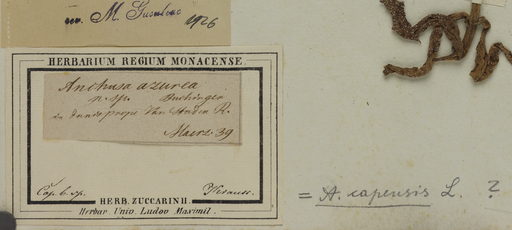 rev. M. Guşuleac 1926
HERBARIUM REGIUM MONACENSE
Anchusa azurea
n. sp. Buchinger
in dunis prope Van Staden R.
Maerz. 39
Cap. b. sp.
HERB. ZUCCARINII.
Herbar. Univ. Ludov Maximil.
= A. capensis L. ?